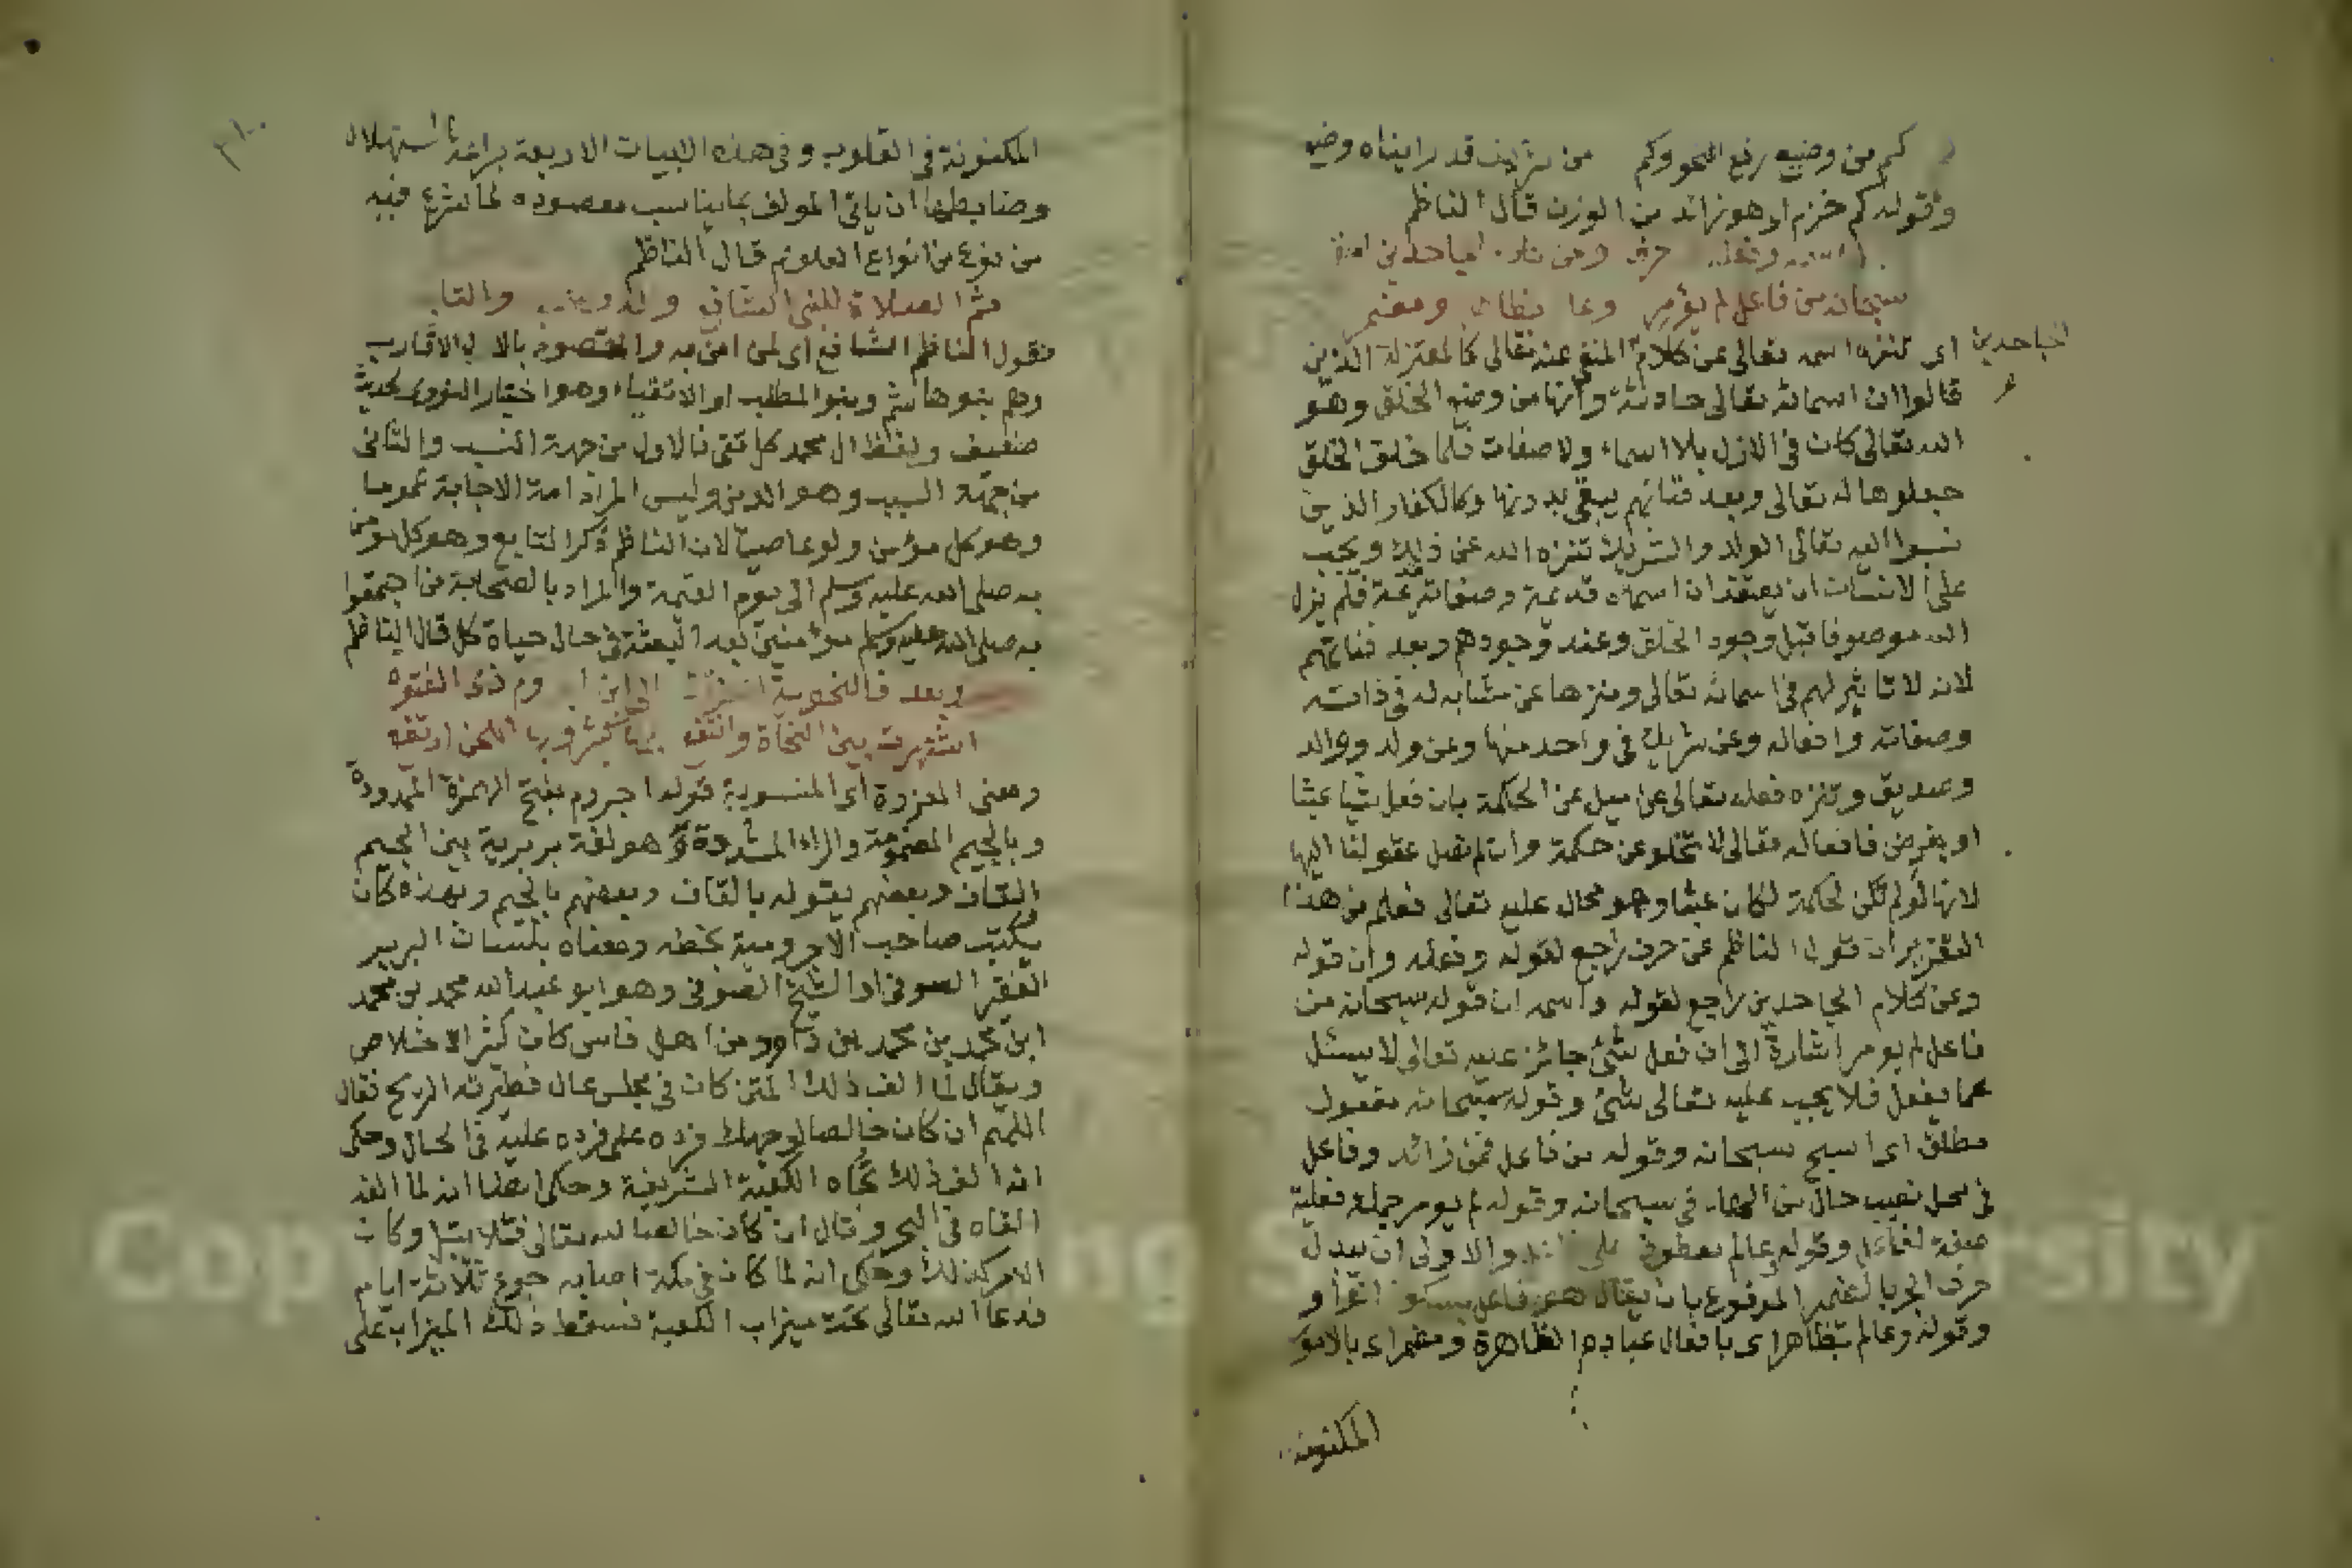 كم من وضيع رفع النحو وكم من شريف قد رايناه وضيع
وقوله كم خزم اي هو زائد من الوزن قال الناظم
سبحانه من فاعل لم يؤمر وعا ومضمر
اى تنزه اسمه تعالى عن كلام المنفى عنه تعالى كالمعتزلة الذين
الجاحدين
قالوا ان اسمائه تعالى حادثة وانها من وضع الخلق وهو
الله تعالى كان فى الازل بلا اسماء ولا صفات فلما خلق الخلق
جعلوها له تعالى وبعد فنائهم يبقى بدونها وكالكفار الذين
نسبوا اليه تعالى الولد والشريك تنزه الله عن ذلك ويجب
على الانسان ان يعتقد ان اسماه قديمة وصفاته فلم يزل
الله موصوفا قبل وجود الخلق وعند وجودهم وبعد فنائهم
لانه لا تاثير لهم فى اسمائه تعالى ومنزها عن مشابه له فى ذاته
وصفاته وافعاله وعن شريك فى واحد منها وعن ولد ووالد
وصديق وتنزه فعله تعالى عن ميل عن الحكمة بان فعل شيا عبثا
او بغرض فافعاله تعالى لا تخلو عن حكمة وان لم تصل عقولنا اليها
لانها لو لم تكن لحكمة لكان عبثا وهو محال عليه تعالى فعلم من هذا
التقرير ان قول الناظم عن حرف راجع لقوله وفعله وان قوله
وعن كلام الجاحدين راجع لقوله واسمه ان قوله سبحانه من
فاعل لم يومر اشارة الى ان فعل شئ جائز عليه تعالى لا يسئل
عما يفعل فلا يجب عليه تعالى شئ وقوله سبحانه مفعول
مطلق اى اسبح سبحانه وقوله من فاعل فمن زائد وفاعل
فى محل نصب حال من الهاء فى سبحانه وقوله لم يومر جملة فعلية
صفة لفاعل وقوله وعالم معطوف على والاولى ان يبدل
حرف الجر بالضمير المرفوع بان يقال هو فاعل
وقوله وعالم بظاهر اى بافعال عباده الظاهرة ومضمر اى بالامور
المكنونة
المكنونة فى القلوب وفى هذه الابيات الاربعة براعة استهلال
وضابطها ان ياتى المولف بما يناسب مقصوده لما شرع فيه
من نوع من انواع العلوم قال الناظم
ثم الصلاة للنبى الشافع واله والتابع
فقول الناظم الشافع اى لمن امن به والمقصود بالال الاقارب
وهم بنو هاشم وبنو المطلب او الاتقياء وهو اختيار النووى لحديث
ضعيف ولفظ ال محمد كل تقى فالاول من جهة النسب والثانى
من جهة السبب وهو الدين وليس المراد امة الاجابة عموما
وهو كل مؤمن ولو عاصيا لان الناظم ذكر التابع وهو كل مؤمن
به صلى الله عليه وسلم الى يوم القيمة والمراد بالصحابة من اجتمعوا
به صلى الله عليه وسلم مؤمنين بعد البعثة فى حال حياة كل قال الناظم
وبعد فالنحوية الى ابن ا روم ذى الفتوه
اشتهرت بين النحاة وانتفع بها كثير
ومعنى المعزوة اى المنسوبة قوله اجروم بفتح الهمزة الممدودة
وبالجيم المضمومة والراء المشددة وهو لغة بربرية بين الجيم
القاف وبعضهم يقوله بالقاف وبعضهم بالجيم وبهذه كان
يكتب صاحب الاجرومية بخطه ومعناه بلسان البربر
الفقير الصوفى او الشيخ الصوفى وهو ابو عبد الله محمد بن محمد
ابن محمد بن محمد بن داوود من اهل فاس كان كثير الاخلاص
ويقال لما الف ذلك المتن كان فى مجلس عال فطيرته الريح فقال
اللهم ان كان خالصا لوجهك فرده على فرده عليه فى الحال وحكى
انه الف ذلك تجاه الكعبة الشريفة وحكى ايضا انه لما الفه
القاه فى البحر وقال ان كان خالصا لله تعالى فلا يبتل وكان
الامر كذلك وحكى انه لما كان فى مكة اصابه جوع ثلاثة ايام
فدعا الله تعالى تحت ميزاب الكعبة فسقط ذلك الميزاب على